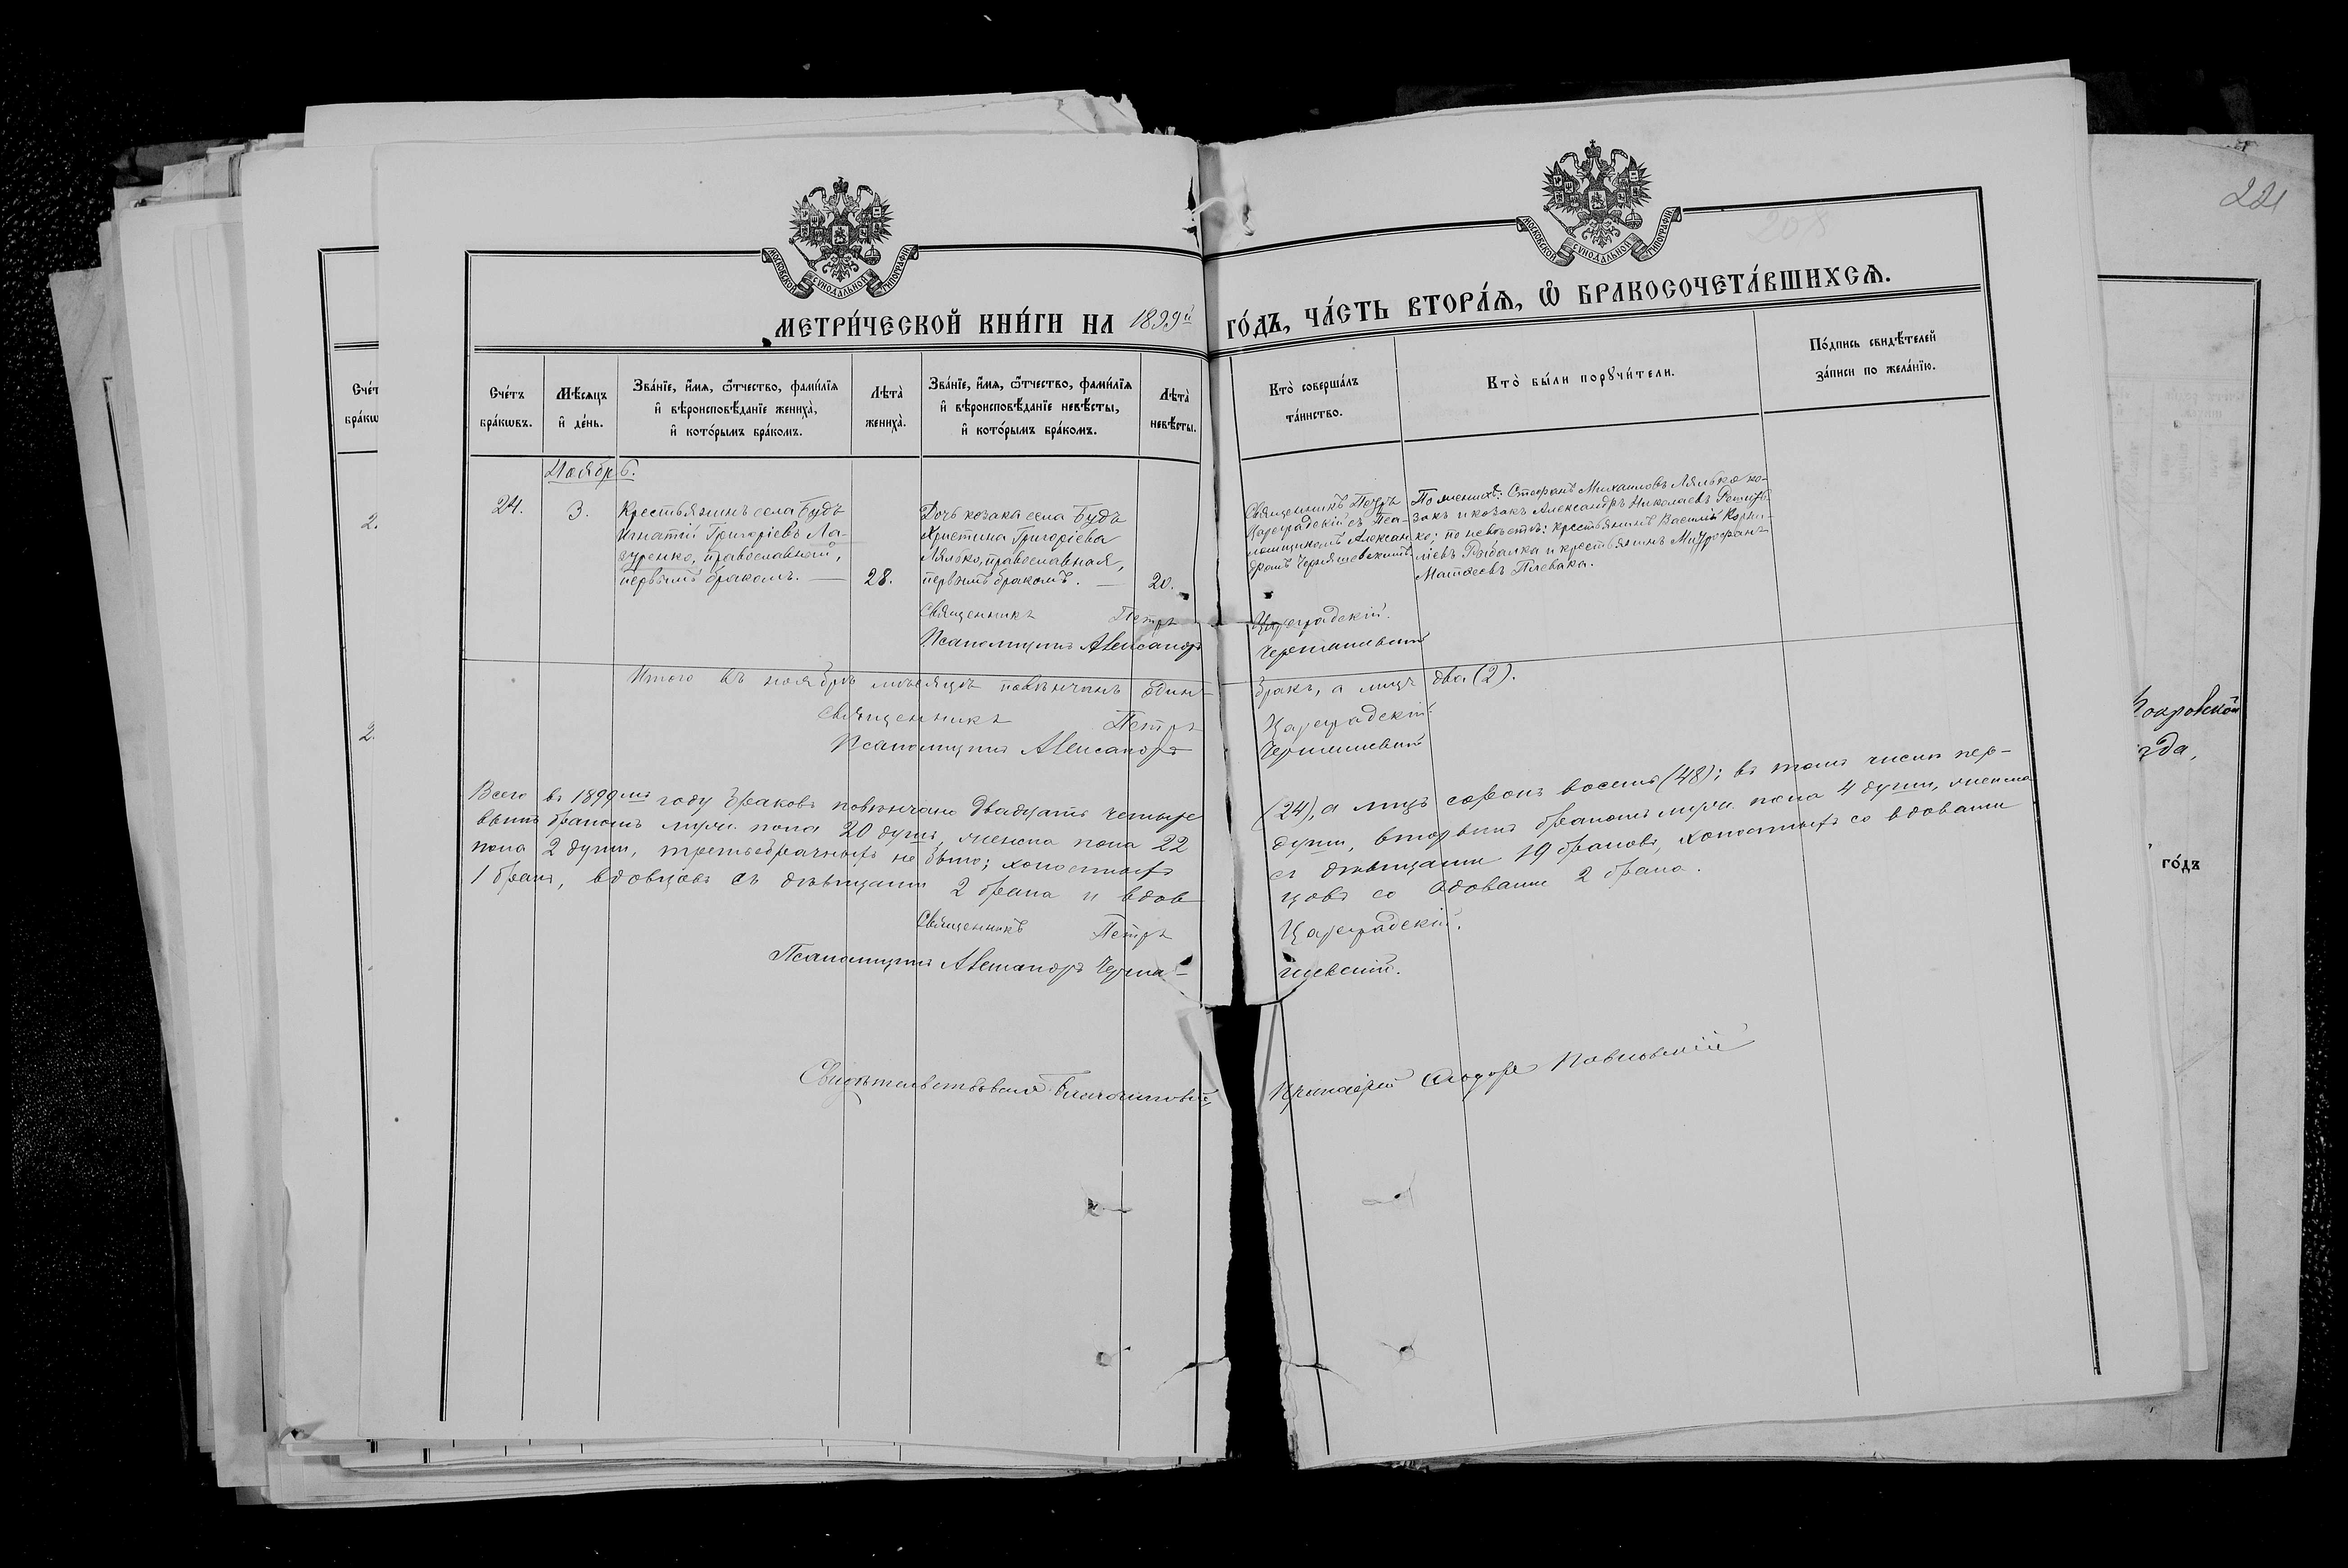 МОСКОВСКОЙ СУНОДАЛЬНОЙ ТИПОГРАФІИ
МОСКОВСКОЙ СУНОДАЛЬНОЙ ТИПОГРАФІИ
208
221
МЕТРИ́ЧЕСКОЙ КНИ́ГИ НА 1899й ГО́ДЪ, ЧА́СТЬ ВТОРА́Я, Ѽ БРАКОСОЧЕТА́ВШИХСЯ.
Сче́тъ
бра́кѡвъ.
Мѣ́сяцъ
и҆ де́нь.
Зва́нїе, и҆́мя, ѻ҆́тчество, фами́лїя
и҆ вѣроисповѣ́данїе жениха̀,
и҆ кото́рымъ бра́комъ.
Лѣта̀
жениха̀.
Зва́нїе, и҆́мя, ѻ҆́тчество, фами́лїя
и҆ вѣроисповѣ́данїе невѣ́сты,
и҆ кото́рымъ бра́комъ.
Лѣта̀
невѣ́сты.
Кто̀ соверша́лъ
та́инство.
Кто̀ бы́ли порꙋчи́тели.
По́дпись свидѣ́телей
за́писи по жела́нїю.
Ноябрь.
24.
3.
Крестьянинъ села Будъ
Игнатій Григоріевъ Ла-
зуренко, православный,
первымъ бракомъ. —
28.
Дочь козака села Будъ
Христина Григоріева
Лялько, православная,
первымъ бракомъ. —
20.
Священникъ Петръ
Цареградскій съ Пса-
ломщикомъ Алексан-
дромъ
По женихѣ: Стефанъ Михаиловъ Лялько ко-
закъ и козакъ Александръ Николаевъ
ко; по невѣстѣ: крестьянинъ Василій Корни-
ліевъ Рыбалка и крестьянинъ Митрофанъ
Матѳеевъ Плевака.
Священникъ Петръ Цареградскій.
Псаломщикъ Александръ
Итого въ ноябрѣ мѣсяцѣ повѣнчанъ одинъ бракъ, а лицъ два (2).
Священникъ Петръ Цареградскій.
Псаломщикъ Александръ
Всего въ 1899мъ году браковъ повѣнчано двадцать четыре (24), а лицъ сорокъ восемь (48); въ томъ числѣ пер-
вымъ бракомъ муж. пола 20 душъ, женска пола 22 души, вторымъ бракомъ муж. пола 4 души, женска
пола 2 души, третьебрачныхъ не было; холостыхъ съ дѣвицами 19 браковъ, холостыхъ со вдовами
1 бракъ, вдовцовъ съ дѣвицами 2 брака и вдов цовъ со вдовами 2 брака.
Священникъ Петръ Цареградскій.
Псаломщикъ Александръ
Свидѣтельствовалъ Благочинный, Протоіерей Ѳеодоръ
Сче́т
бра́кѡ
2.
2.
Покровской
зда,
го́дъ